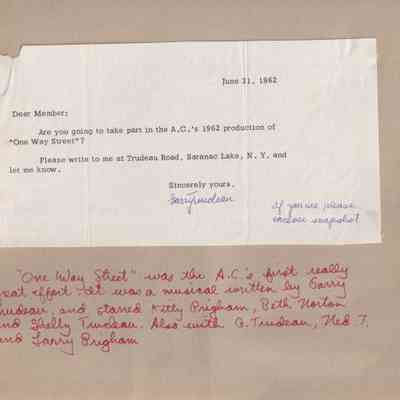 June 21, 1962
Dear Member:
Are you going to take part in the A.C.'s 1962 production of
"One Way Street"?
Please write to me at Trudeau Road, Saranac Lake, N. Y. and
let me know.
Sincerely yours,
Garry Trudeau
if you are please
enclose snapshot
"One Way Street" was the A.C.'s first really
great effort. It was a musical written by Garry
Trudeau, and starred Kitty Brigham, Beth Norton
and Shelly Trudeau. Also with G. Trudeau, Ned T.
and Larry Brigham